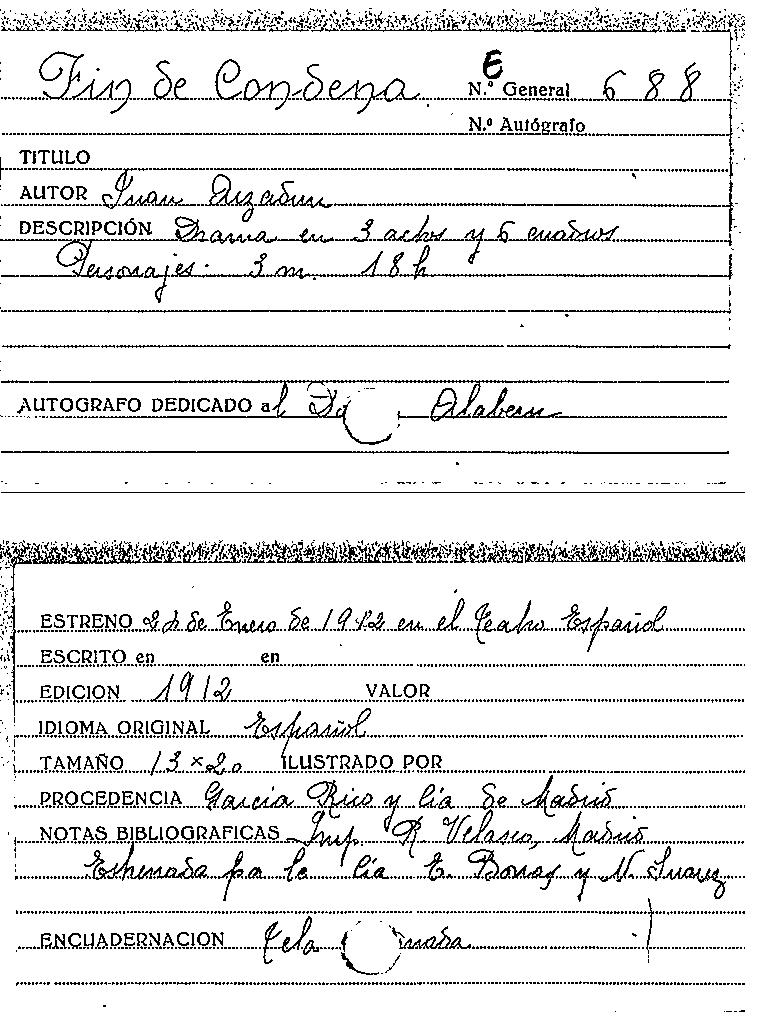 Fin de Condena E
N.º General 688
N.º Autógrafo
TITULO
AUTOR Juan
DESCRIPCIÓN Drama en 3 actos y 6 cuadros
Personajes: 3 m. 18 h
AUTOGRAFO DEDICADO al Alabern
ESTRENO de Enero de 1912 en el Teatro Español
ESCRITO en en
EDICION 1912 VALOR
IDIOMA ORIGINAL Español
TAMAÑO 13 x 20 ILUSTRADO POR
PROCEDENCIA Garcia Rico y Cia de Madrid
NOTAS BIBLIOGRAFICAS Imp. R. Velasco, Madrid
Estrenada por la Cia E. Borras y N. Suarez
ENCUADERNACION Tela